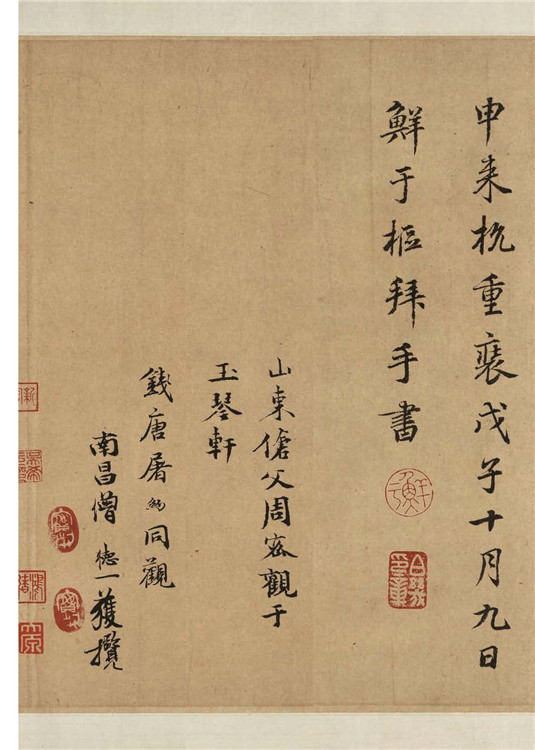 申来杭重裝戊子十月九日
鮮于樞拜手書
山東傖父周密觀于
玉琴軒
錢唐屠約同觀
南昌僧德一獲攬